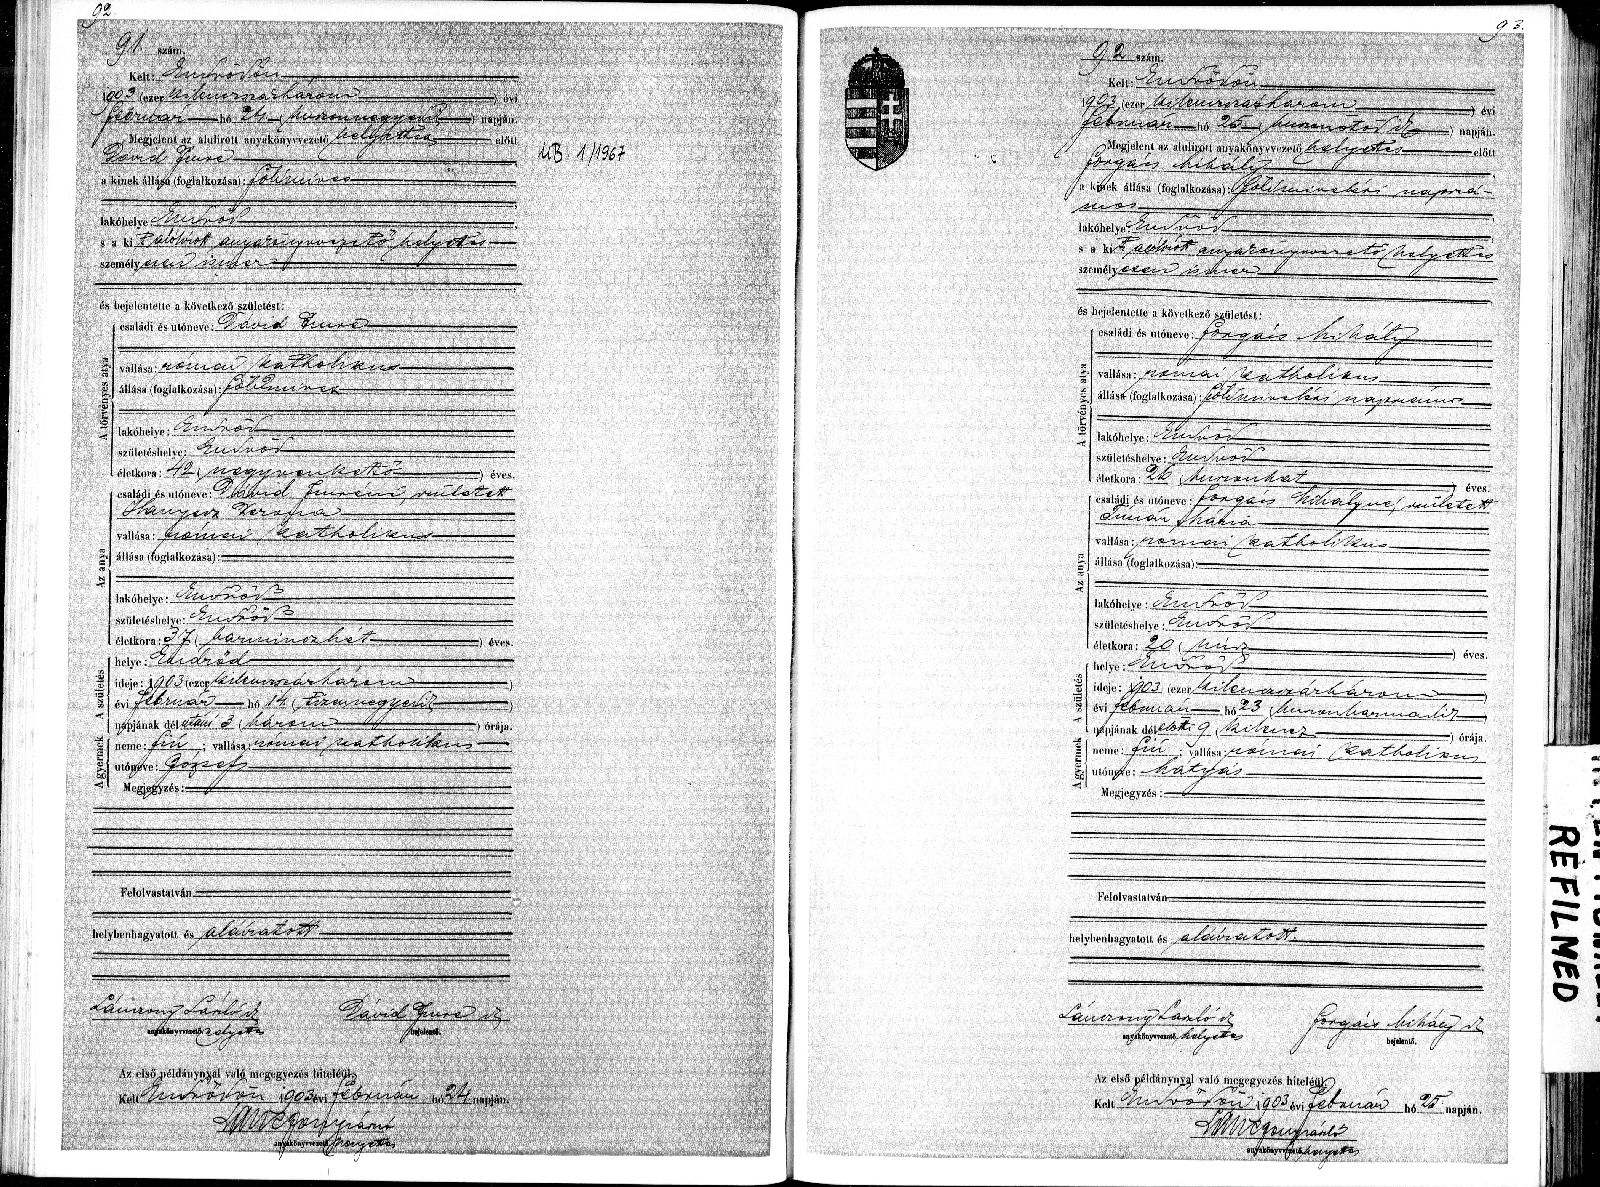 92.
91 szám.
Kelt: Endrődön
1903 (ezer kilenczszázhárom) évi
február hó 24 (huszonnegyedik) napján.
Megjelent az alulirott anyakönyvvezető helyettes előtt
Dávid Imre
a kinek állása (foglalkozása): földmives
lakóhelye Endrőd
s a kit alólirott anyakönyvvezető helyettes
személyesen ismer
és bejelentette a következő születést:
A törvényes atya
családi és utóneve: Dávid Imre
vallása: római katholikus
állása (foglalkozása): földmives
lakóhelye: Endrőd
születéshelye: Endrőd
életkora: 42 (negyvenkettő) éves.
Az anya
családi és utóneve: Dávid Imréné, született
Hanyecz
vallása: római katholikus
állása (foglalkozása):
lakóhelye: Endrőd
születéshelye: Endrőd
életkora: 37 (harminczhét) éves.
A születés
helye: Endrőd
ideje: 1903 (ezer kilenczszázhárom)
évi február hó 14 (tizennegyedik)
napjának dél utáni 3 (három) órája.
A gyermek
neme: fiú; vallása: római katholikus
utóneve: József
Megjegyzés:
Felolvastatván
helybenhagyatott és aláiratott
László
anyakönyvvezető helyettes
Dávid Imre
bejelentő.
Az első példánynyal való megegyezés hiteléül
Kelt Endrődön 1903 évi február hó 24 napján.
anyakönyvvezető helyettes
MB 1/1967
93.
92 szám.
Kelt: Endrődön
1903 (ezer kilenczszázhárom) évi
február hó 25 (huszonötödik) napján.
Megjelent az alulirott anyakönyvvezető helyettes előtt
Forgács Mihály
a kinek állása (foglalkozása): földmivelési napszá-
mos
lakóhelye Endrőd
s a kit alolirott anyakönyvvezető helyettes
személyesen ismer
és bejelentette a következő születést:
A törvényes atya
családi és utóneve: Forgács Mihály
vallása: római katholikus
állása (foglalkozása): földmivelési napszámos
lakóhelye: Endrőd
születéshelye: Endrőd
életkora: 26 (huszonhat) éves.
Az anya
családi és utóneve: Forgács Mihályné, született
Mária
vallása: római katholikus
állása (foglalkozása):
lakóhelye: Endrőd
születéshelye: Endrőd
életkora: 20 (húsz) éves.
A születés
helye: Endrőd
ideje: 1903 (ezer kilenczszázhárom)
évi február hó 23 (huszonharmadik)
napjának dél előtt 9 (kilencz) órája.
A gyermek
neme: fiú; vallása: római katholikus
utóneve: Mátyás
Megjegyzés:
Felolvastatván
helybenhagyatott és aláiratott.
László
anyakönyvvezető helyettes
Forgács Mihály
bejelentő.
Az első példánynyal való megegyezés hiteléül
Kelt Endrődön 1903 évi február hó 25 napján.
anyakönyvvezető helyettes
REFILMED